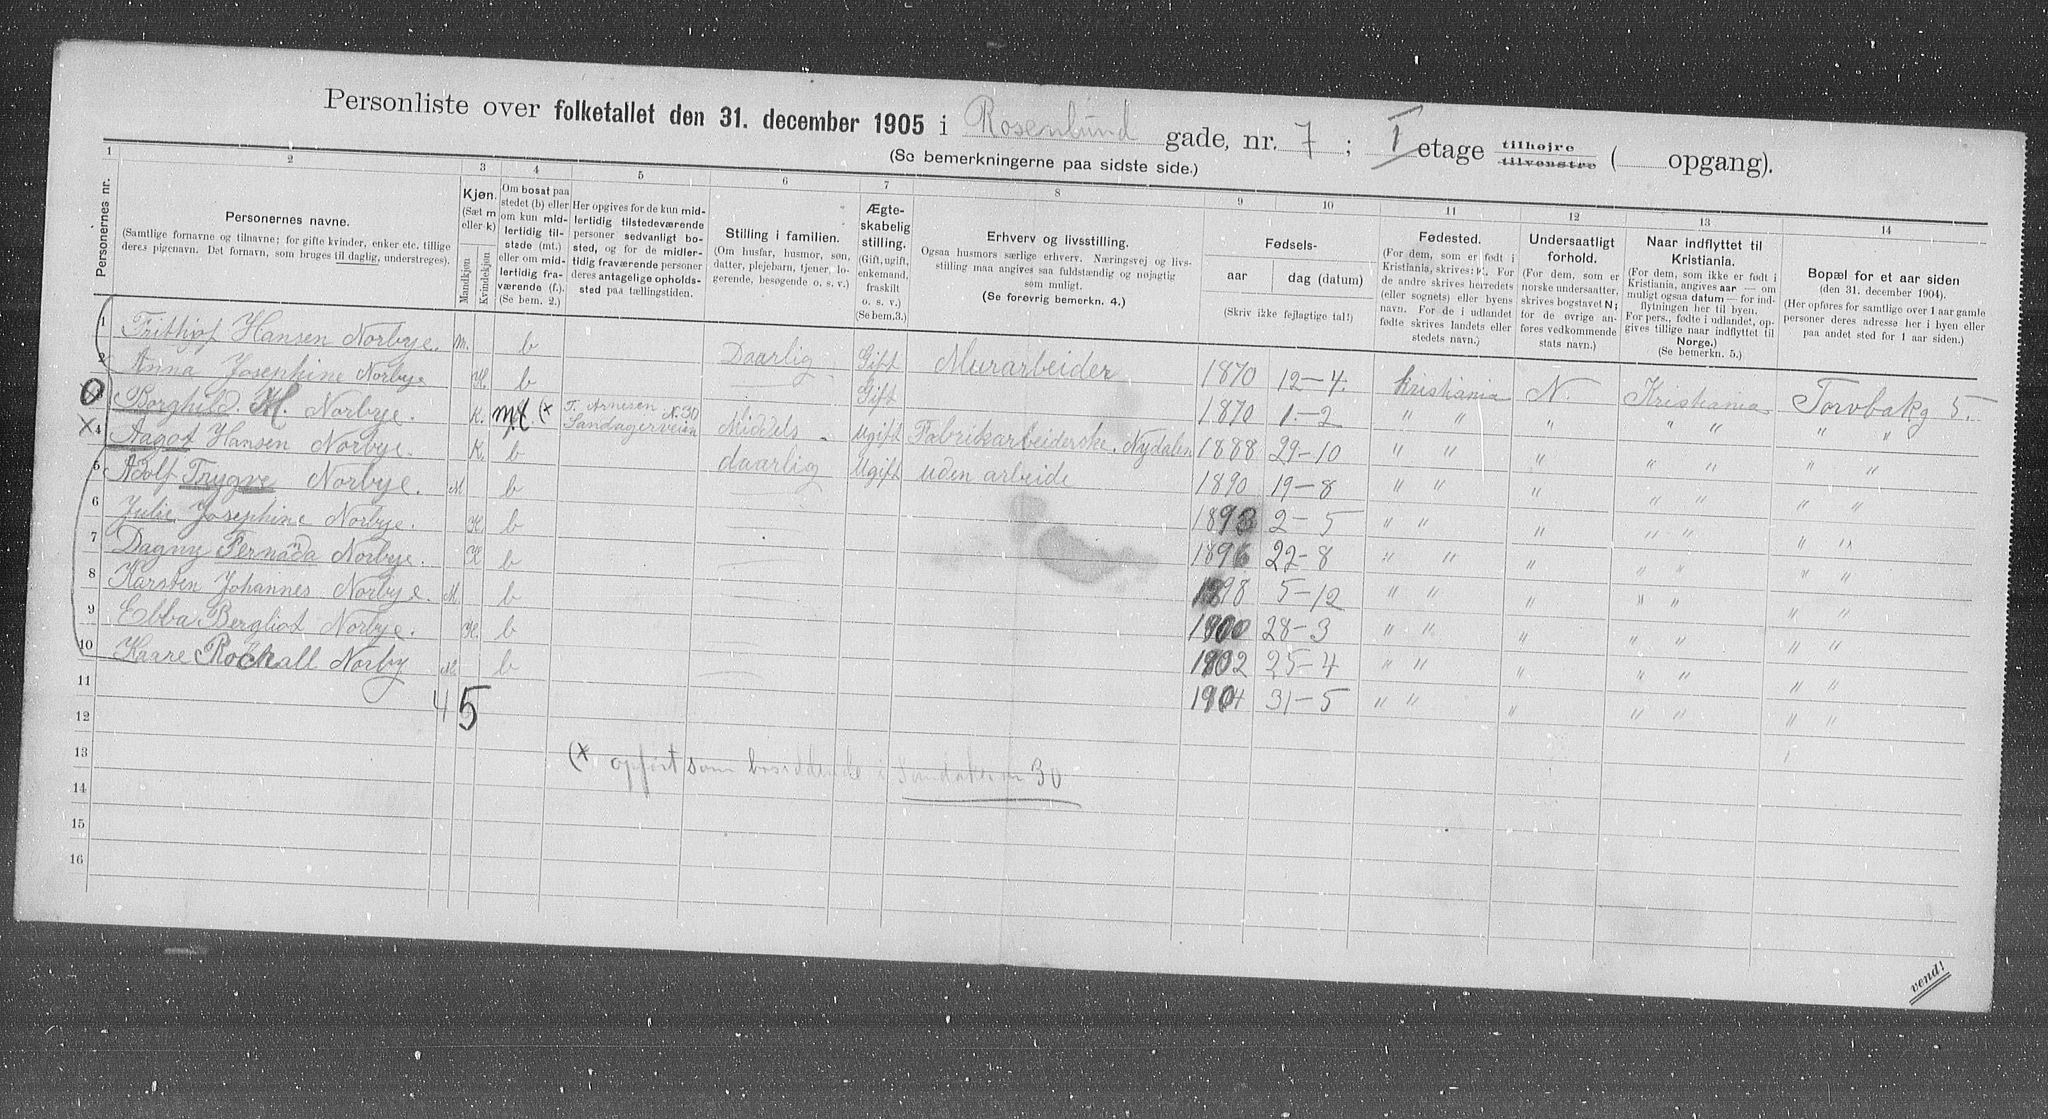 Personliste over folketallet den 31. december 1905 i Rosenlund gade, nr. 7 ; I etage tilhøjre tilvenstre ( opgang).
(Se bemerkningerne paa sidste side.)
1 2 3 4 5 6 7 8 9 10 11 12 13 14
Personernes nr.
Personernes navne.
(Samtlige fornavne og tilnavne; for gifte kvinder, enker etc. tillige
deres pigenavn. Det fornavn, som bruges til daglig, understreges).
Kjøn.
(Sæt m
eller k)
Mandkjøn
Kvindekjøn
Om bosat paa
stedet (b) eller
om kun mid-
lertidig til-
stede (mt.)
eller om mid-
lertidig fra-
værende (f.).
(Se bem. 2.)
Her opgives for de kun mid-
lertidig tilstedeværende
personer sedvanlig bo-
sted, og for de midler-
tidig fraværende personer
deres antagelige opholds-
sted paa tællingstiden.
Stilling i familien.
(Om husfar, husmor, søn,
datter, plejebarn, tjener, lo-
gerende, besøgende o. s. v.)
Ægte-
skabelig
stilling.
(Gift, ugift,
enkemand,
fraskilt
o. s. v.)
(Se bem. 3.)
Erhverv og livsstilling.
Ogsaa husmors særlige erhverv. Næringsvej og livs-
stilling maa angives saa fuldstændig og nøjagtig
som muligt.
(Se forøvrig bemerkn. 4.)
Fødsels-
aar dag (datum)
(Skriv ikke fejlagtige tal!)
Fødested.
(For dem, som er født i
Kristiania, skrives: K. For
de andre skrives herredets
(eller sognets) eller byens
navn. For de i udlandet
fødte skrives landets eller
stedets navn.)
Undersaatligt
forhold.
(For dem, som er
norske undersaatter,
skrives bogstavet N;
for de øvrige an-
føres vedkommende
stats navn.)
Naar indflyttet til
Kristiania.
(For dem, som ikke er født i
Kristiania, angives aar — om
muligt ogsaa datum — for ind-
flytningen her til byen.
For pers., fødte i udlandet, op-
gives tillige naar indflyttet til
Norge.)
(Se bemerkn. 5.)
Bopæl for et aar siden
(den 31. december 1904).
(Her opføres for samtlige over 1 aar gamle
personer deres adresse her i byen eller
paa andet sted for 1 aar siden.)
1 Frithjof Hansen Norbye. m. b Daarlig Gift Murarbeider 1870 12-4. Kristiania N. Kristiania Torvbakg 5.
2 Anna Josephine Norbye K b Gift 1870 1.-2 " " " " " " "
Borghild H. Norbye. K. mt (x T. Arnesen N. 30 Sandagerveien Middels Ugift Fabrikarbeiderske. Nydalen 1888 29-10 " " " " " " "
x4 Aagot Hansen Norbye. K. b daarlig Ugift uden arbeide 1890 19-8 " " " " " " "
5 Adolf Trygve Norbye. M b 1893 2-5 " " " " " " "
6 Julie Josephine Norbye. K b 1896 22-8 " " " " " " "
7 Dagny Fernanda Norbye. K b 1898 5-12 " " " " " " "
8 Karsten Johannes Norbye. M b 1900 28-3 " " " " " " "
9 Ebba Bergliot Norbye. K. b 1902 25-4 " " " " " " "
10 Kaare Rockall Norby M. b 1904 31-5 " " " " " " "
11
4 5
12
13
(x opført som bosiddende i Sandakerv 30
14
15
16
vend!